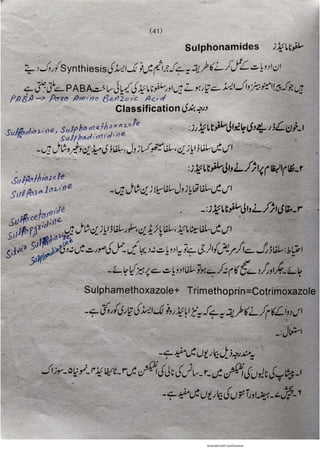 (41)
Sulphonamides سلفونامائیڈز
ان ادویات کے عمل کرنے کا طریقہ یہ ہے کہ جراثیم میں فولک ایسڈ کی Synthiesis کو روک دیتے
ہیں جو کہ پیرا امینو بینزوئک ایسڈ سے تیار ہوتے ہیں اور سلفونامائیڈ کی کیمیائی ساخت PABA سے ملتی جلتی ہے
PABA → Para Amino Benzoic Acid
درجہ بندی Classification
۱۔ خون کے ذریعے دی جانیوالی سلفونامائیڈرز:
Sulfadiazine, Sulphamethoxazole
Sulphadimidine
اس میں سلفاڈایازین، سلفا میتھوکسازول، سلفاڈی میڈین وغیرہ شامل ہیں۔
۲۔ نظام انہظام پر اثر کرنے والی سلفونامائیڈرز:
Sulfathiazole
Sulfasalazine
اس میں سلفا تھایازول، سلفاسیلازین شامل ہیں۔
۳۔ مقامی اثر کرنے والی سلفونامائیڈرز:۔
Sulfacetamide
Silver Sulfadiazine
اس میں سلفاسیٹامائیڈ، سلفاپائریڈین، سلور سلفاڈایازین شامل ہیں
احتیاط: سلفاڈرگ سے اگر مریض کو الرجی ہے تو یہ ادویات نہ دیجائیں۔ حمل کی صورت میں نہ دی
جائے۔ جگر اور گردے صحیح کام نہ کر رہے ہو تو سلفا ادویات سے پرہیز کیا جائے۔
Sulphamethoxazole+ Trimethoprin=Cotrimoxazole
اس دوا کے کام کرنے کا طریقہ یہ ہے کہ یہ ٹیٹرا ہائیڈرو فولک ایسڈ کی تیاری کو روکتی ہے۔
استعمال:۔
یہ مندرجہ ذیل بیماریوں میں مفید ہے۔
۱۔ پیشاب کی نالیوں کی انفیکشن میں ۲۔ سانس کی نالی کی انفیکشن میں ۳۔ ٹائیفائیڈ ۴۔ نمونیا ۵۔ سوزاک
۶۔ پیچش ۷۔ ہیضہ اور آنتوں کی بیماریوں میں مفید ہے۔
Scanned with CamScanner